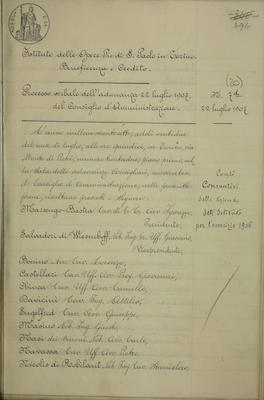 246
Istituto delle Opere Pie di S. Paolo in Torino.
Beneficenza e Credito.
Processo verbale dell'adunanza 22 luglio 1907,
del Consiglio di Amministrazione.
N. 7
22 luglio 1907
L'anno millenovecentosette, addì ventidue
del mese di luglio, alle ore quindici, in Torino, via
Monte di Pietà, numero trentadue, piano primo, nel
la sala delle adunanze Consigliari, convocatosi
il Consiglio di Amministrazione, nelle prescritte
forme, risultano presenti i Signori:
Conti
Consuntivi
delle Aziende
dell'Istituto
per l'esercizio 1906
Marsengo-Bastia Ignazio,
Presidente,
Salvadori di Wiesenhoff, Giacomo,
Vicepresidente,
Bonino Avv. Cav. Lorenzo,
Castellari Cav. Uff. Avv. Prof. Giovanni,
Cav. Uff. Avv. Camillo,
Davicini Cav. Ing. Attilio,
Engelfred Cav. Avv. Giuseppe,
Masino Nob. Ing. Guido,
Masi dei Baroni Nob. Avv. Carlo,
Ravassa Cav. Uff. Avv. Pietro,
Nicolis di Robilant, Nob. Ing. Cav. Stanislao,